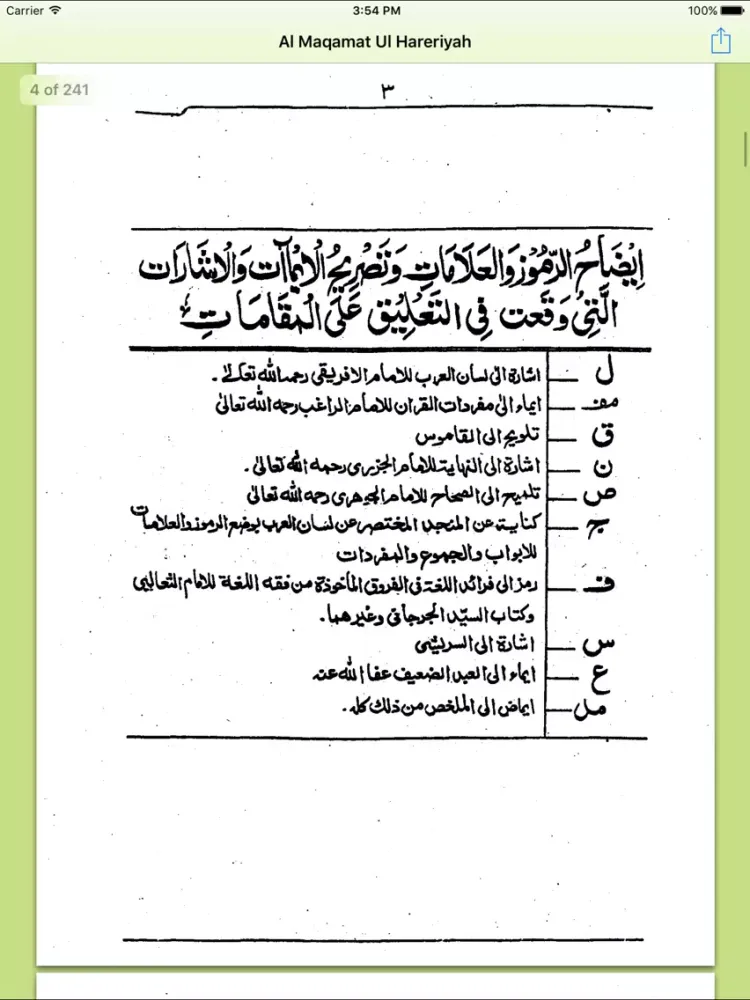 Carrier 3:54 PM 100%
Al Maqamat Ul Hareriyah
4 of 241
٣
اِیْضَاحُ الرُّمُوْزِ وَالْعَلَامَاتِ وَتَصْرِیْحُ الْاِیْمَآتِ وَالْاِشَارَات
الَّتِیْ وَقَعَت فِی التَّعْلِیْقِ عَلَی الْمَقَامَاتِ
ل — اشارة الی لسان العرب للامام الافریقی رحمہ اللّٰہ تعالیٰ .
مف — ایماء الیٰ مفردات القراٰن للامام الراغب رحمه اللّٰہ تعالیٰ
ق — تلویح الی القاموس
ن — اشارة الی النهایة للامام الجزری رحمه اللّٰہ تعالیٰ .
ص — تلمیح الی الصحاح للامام الجوهری رحمه اللّٰہ تعالیٰ
ج — کنایة عن المنجد المختصر عن لسان العرب بوضع الرموز والعلامات
للابواب والجموع والمفردات
ف — رمز الی فرائد اللغة فی الفروق المأخوذة من فقه اللغة للامام الثعالبی
وکتاب السیّد الجرجانی وغیرهما .
س — اشارة الی السریشی
ع — ایماء الی العبد الضعیف عفا اللّٰہ عنه
مل — ایماض الی الملخص من ذلك کله .